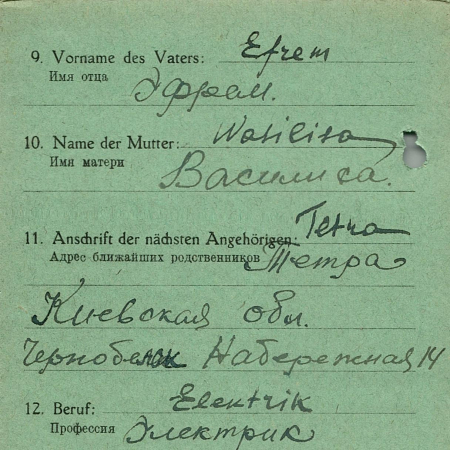 9. Vorname des Vaters: Efrem
Имя отца Эфрем.
10. Name der Mutter: Wasilisa
Имя матери Василиса.
11. Anschrift der nächsten Angehörigen: Tetra
Адрес ближайших родственников Тетра
Киевская обл.
Набережная 14
12. Beruf: Elektrik
Профессия Электрик